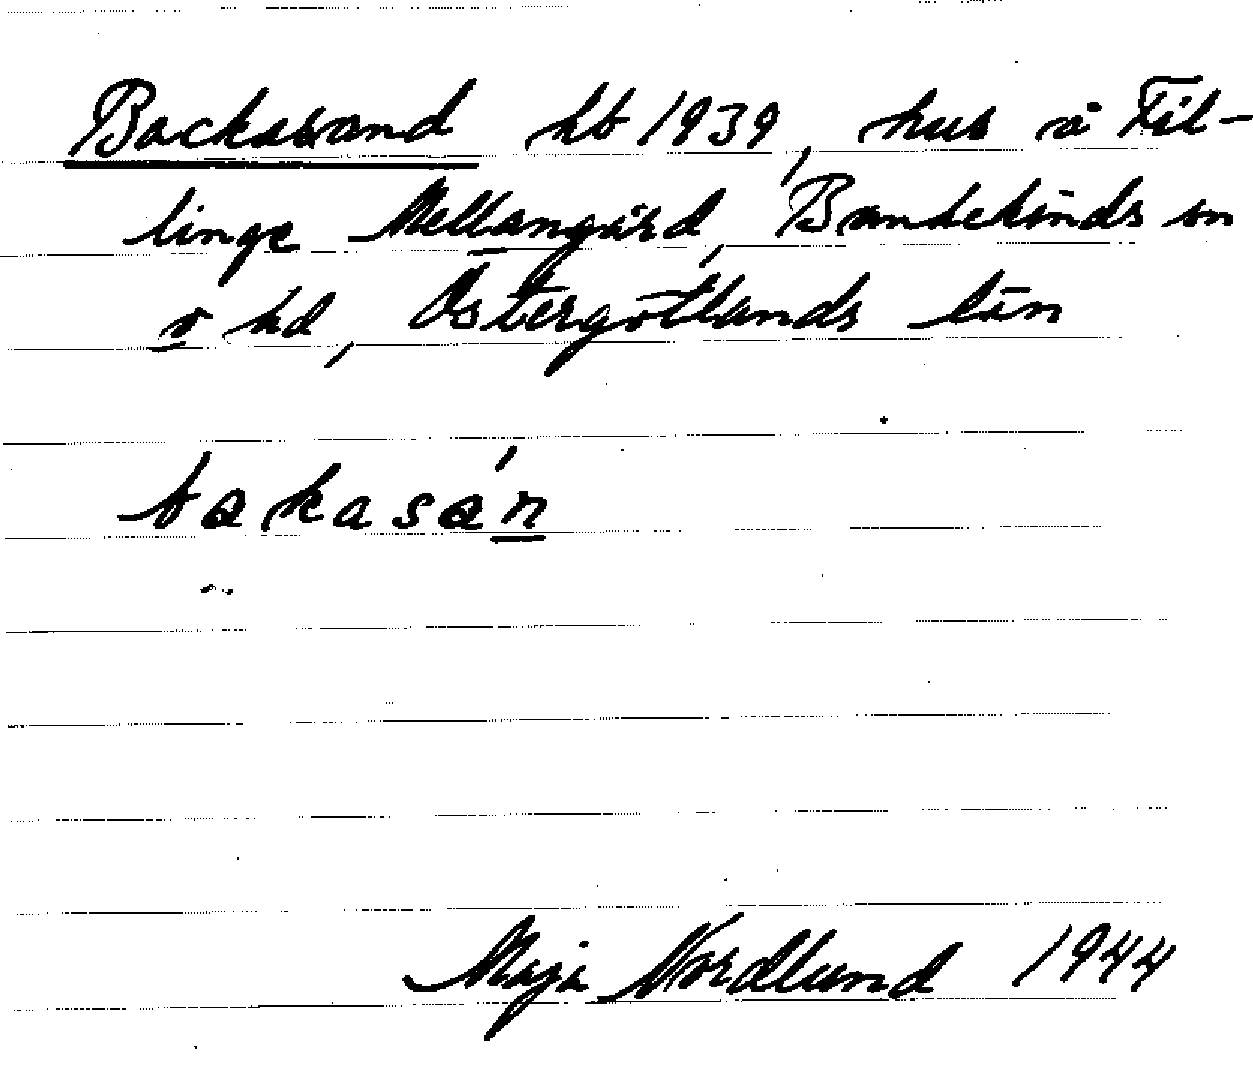 Backasand hb 1939, hus å Fil-
linge Mellangård, Bankekinds sn
o hd, Östergötlands län
bakasan
Maja Nordlund 1944